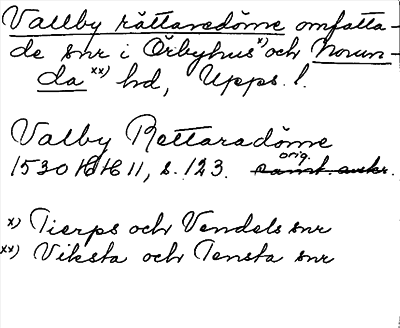 Vallby rättaredöme omfatta-
de snr i Örbyhus x) och Norun-
da xx) hd, Upps. l.
Valby Rettaradöme
1530 HH 11, s. 123. orig. samt. avskr.
x) Tierps och Vendels snr
xx) Viksta och Tensta snr